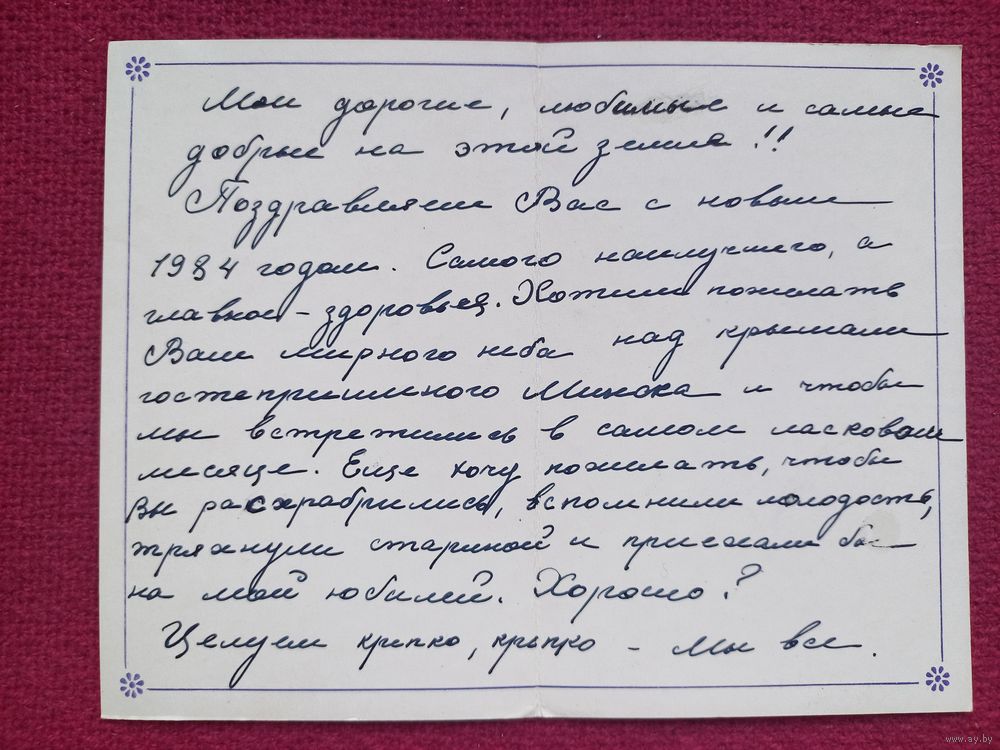 Мои дорогие, любимые и самые
добрые на этой земле!!
Поздравляем Вас с новым
1984 годом. Самого наилучшего, а
главное – здоровья. Хотим пожелать
Вам мирного неба над крышами
гостеприимного Минска и чтобы
мы встретились в самом ласковом
месяце. Еще хочу пожелать, чтобы
Вы расхрабрились, вспомнили молодость,
тряхнули стариной и приехали бы
на мой юбилей. Хорошо?
Целуем крепко, крепко – Мы все.
www.ay.by